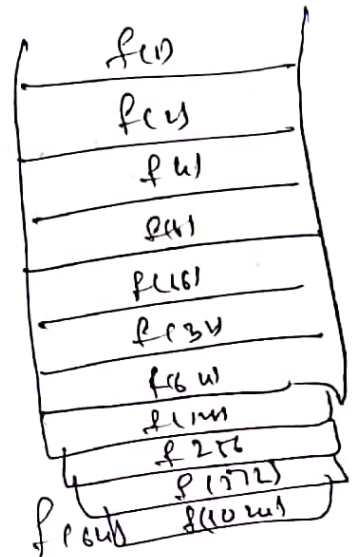 f(1)
f(2)
f(4)
f(8)
f(16)
f(32)
f(64)
f(128)
f 256
f(512)
f(1024)